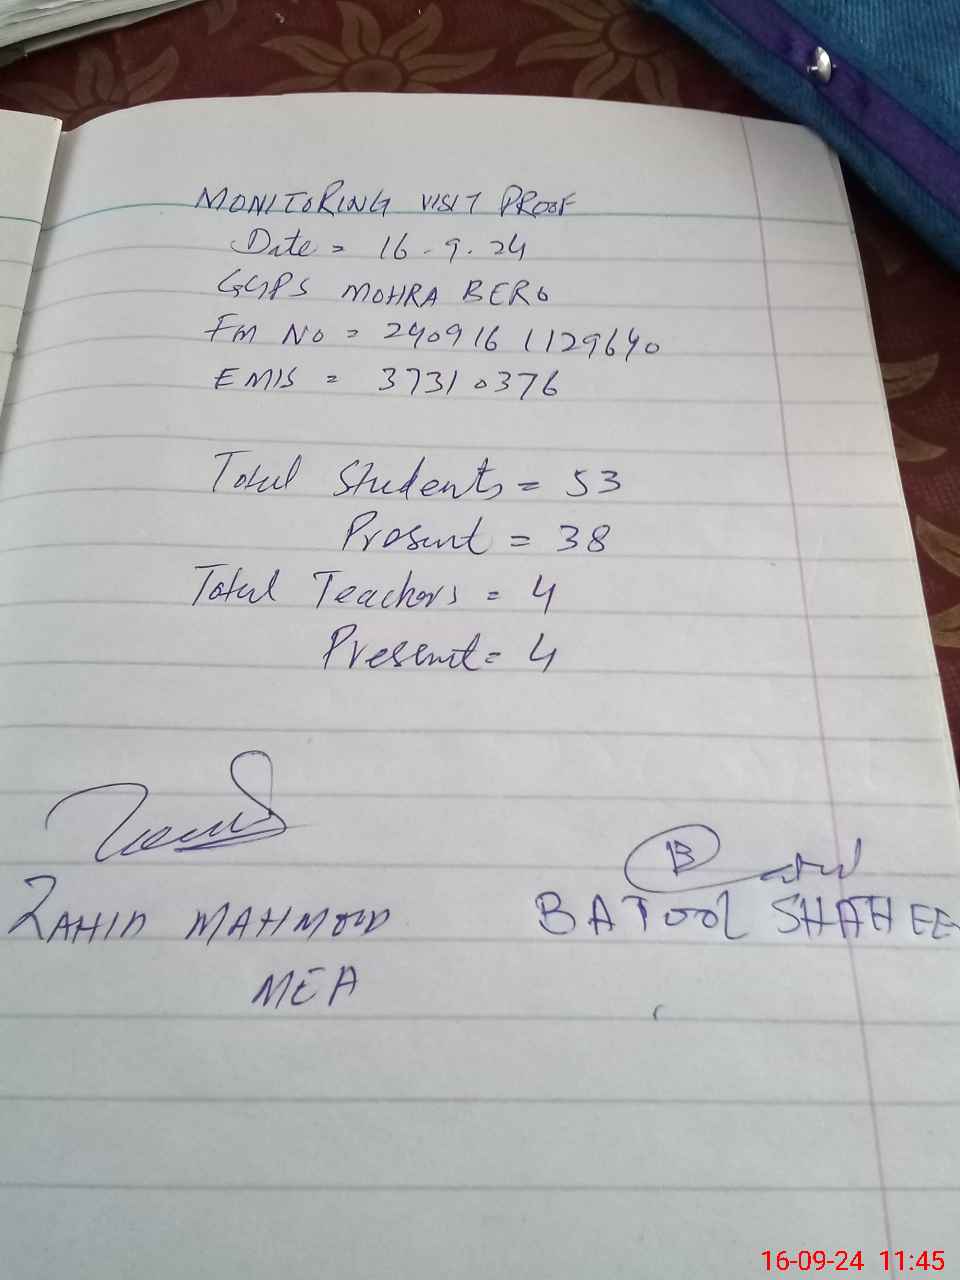 MONITORING VISIT PROOF
Date = 16-9.24
GGPS MOHRA BERO
FM No = 2409161129640
EMIS = 37310376
Total Students = 53
Present = 38
Total Teachers = 4
Present = 4
ZAHID MAHMOOD
BATOOL SHAHEE
MEA
16-09-24 11:45